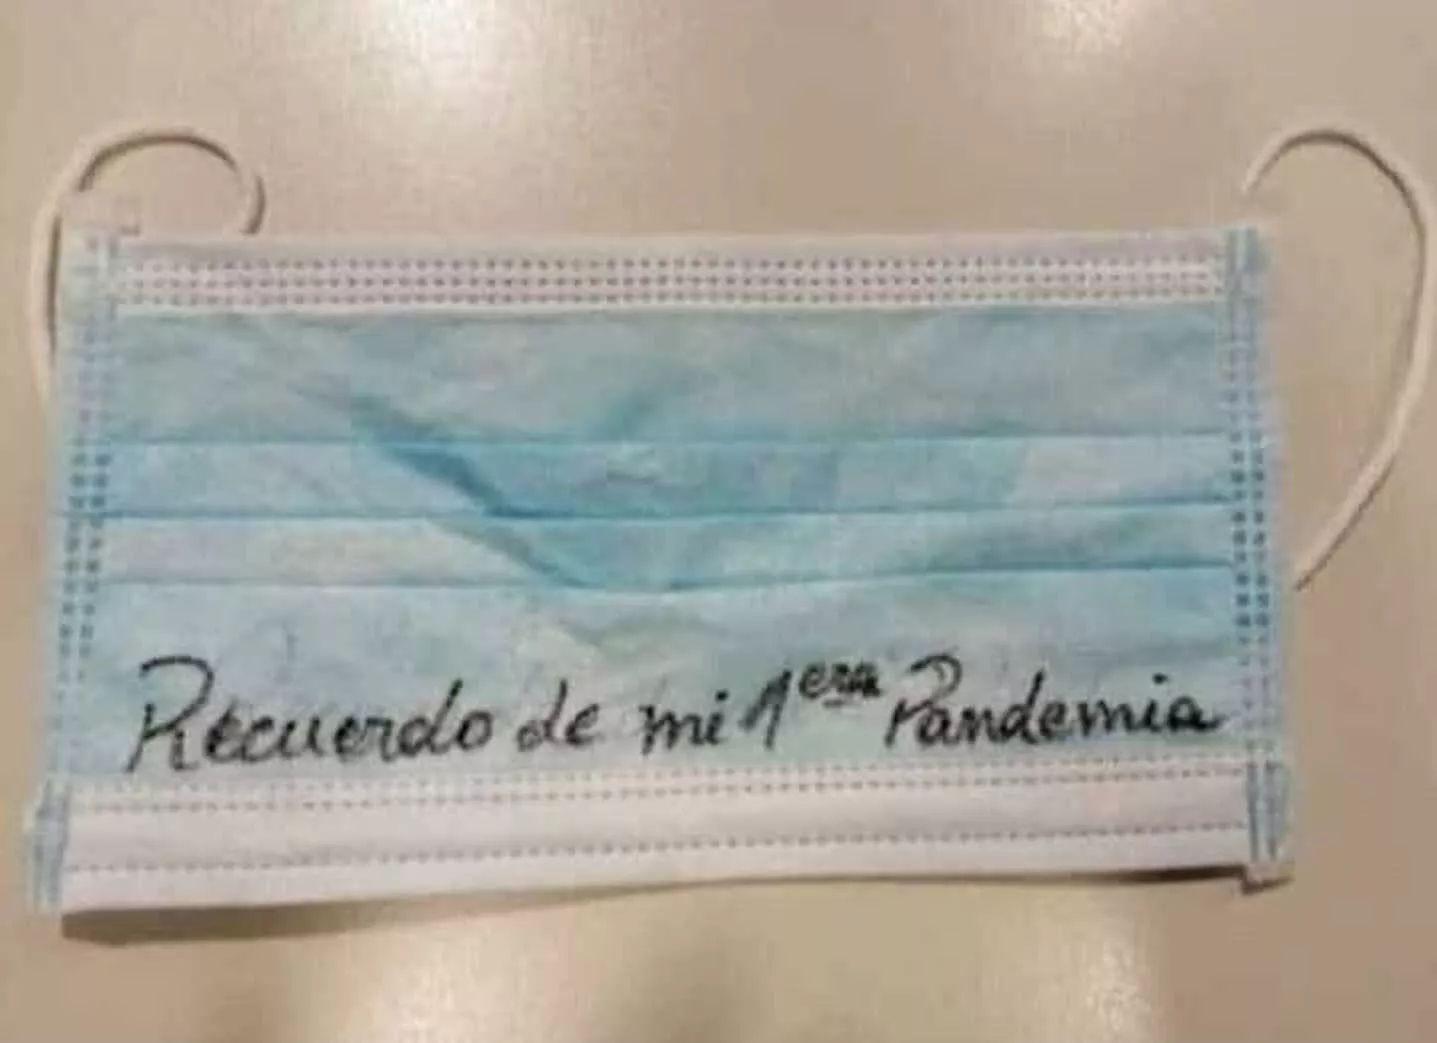 Recuerdo de mi 1era Pandemia